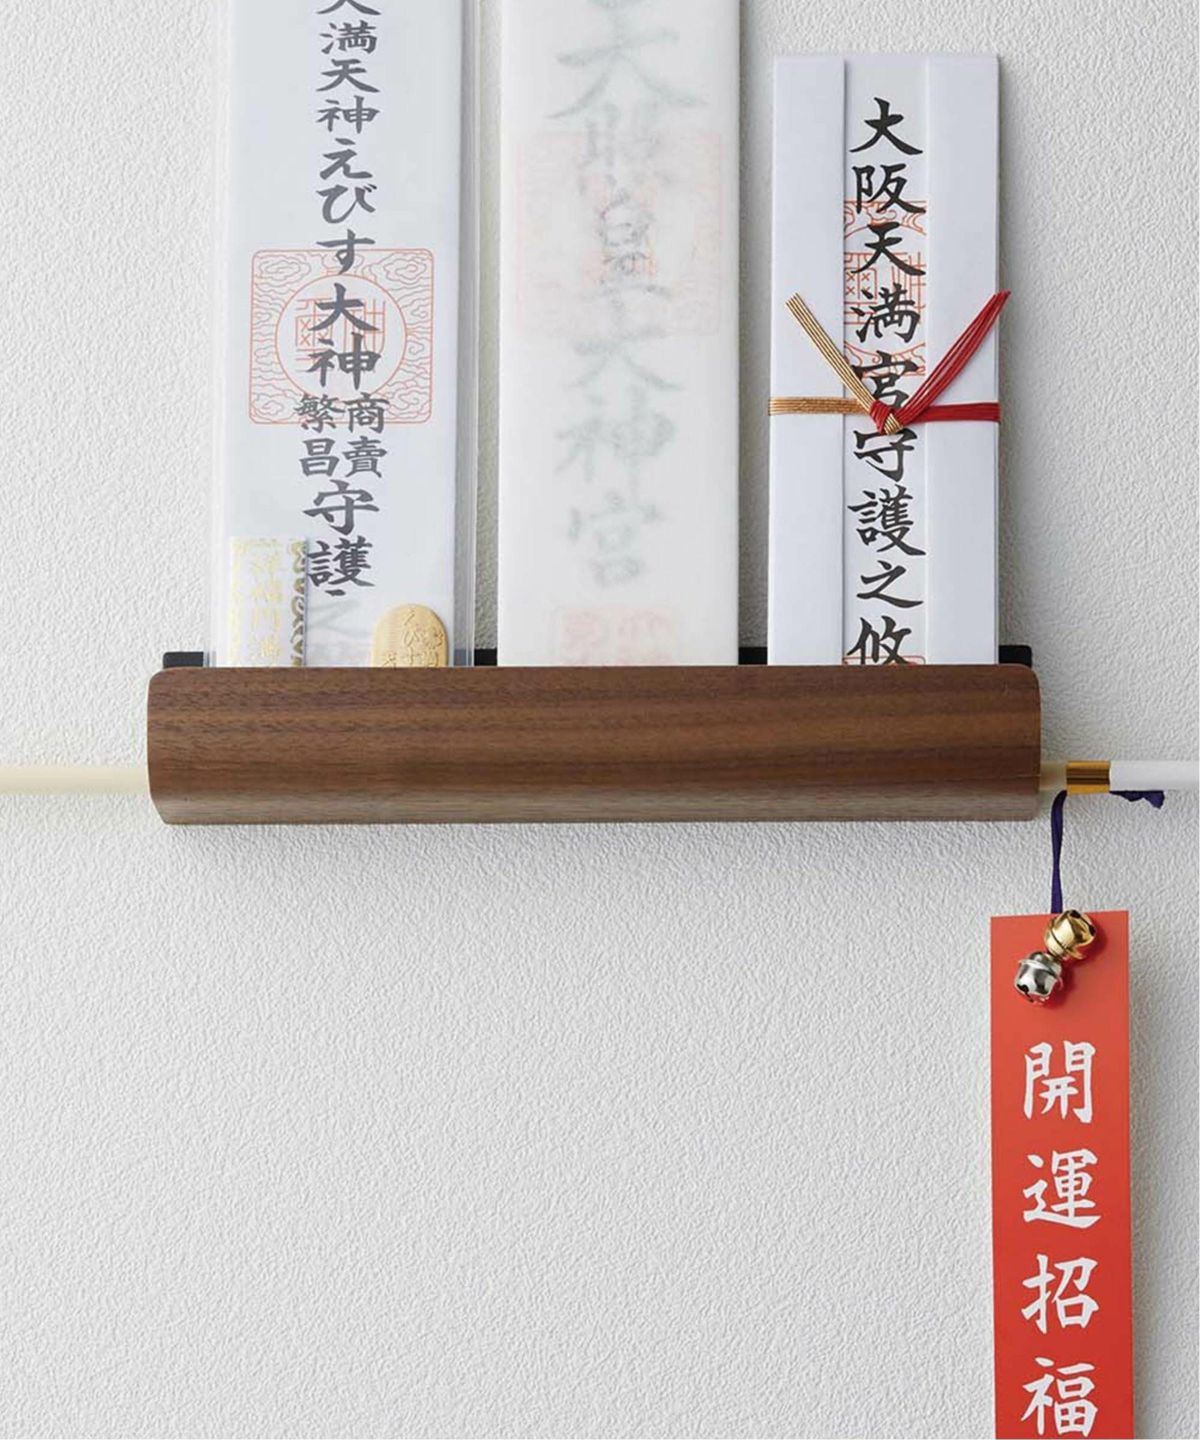 天満天神えびす大神
商賣
繁昌
守護
天照皇大神宮
大阪天満宮守護之攸
開運招福
えびす